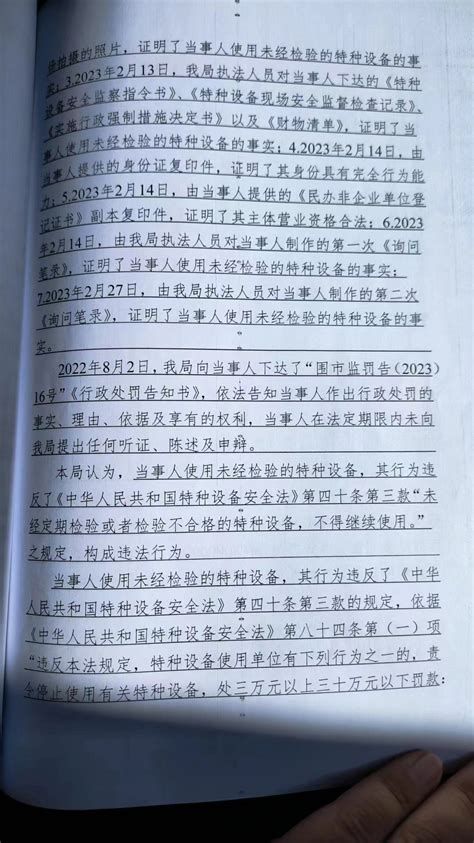 拍摄的照片，证明了当事人使用未经检验的特种设备的事
实；3.2023年2月13日，我局执法人员对当事人下达的《特种
设备安全监察指令书》、《特种设备现场安全监督检查记录》、
《实施行政强制措施决定书》以及《财物清单》，证明了当
事人使用未经检验的特种设备的事实；4.2023年2月14日，由
当事人提供的身份证复印件，证明了其身份具有完全行为能
力；5.2023年2月14日，由当事人提供的《民办非企业单位登
记证书》副本复印件，证明了其主体营业资格合法；6.2023
年2月14日，由我局执法人员对当事人制作的第一次《询问
笔录》，证明了当事人使用未经检验的特种设备的事实；
7.2023年2月27日，由我局执法人员对当事人制作的第二次
《询问笔录》，证明了当事人使用未经检验的特种设备的事
实。
2022年8月2日，我局向当事人下达了“围市监罚告（2023）
16号”《行政处罚告知书》，依法告知当事人作出行政处罚的
事实、理由、依据及享有的权利，当事人在法定期限内未向
我局提出任何听证、陈述及申辩。
本局认为，当事人使用未经检验的特种设备，其行为违
反了《中华人民共和国特种设备安全法》第四十条第三款“未
经定期检验或者检验不合格的特种设备，不得继续使用。”
之规定，构成违法行为。
当事人使用未经检验的特种设备，其行为违反了《中华
人民共和国特种设备安全法》第四十条第三款的规定，依据
《中华人民共和国特种设备安全法》第八十四条第（一）项
“违反本法规定，特种设备使用单位有下列行为之一的，责
令停止使用有关特种设备，处三万元以上三十万元以下罚款：